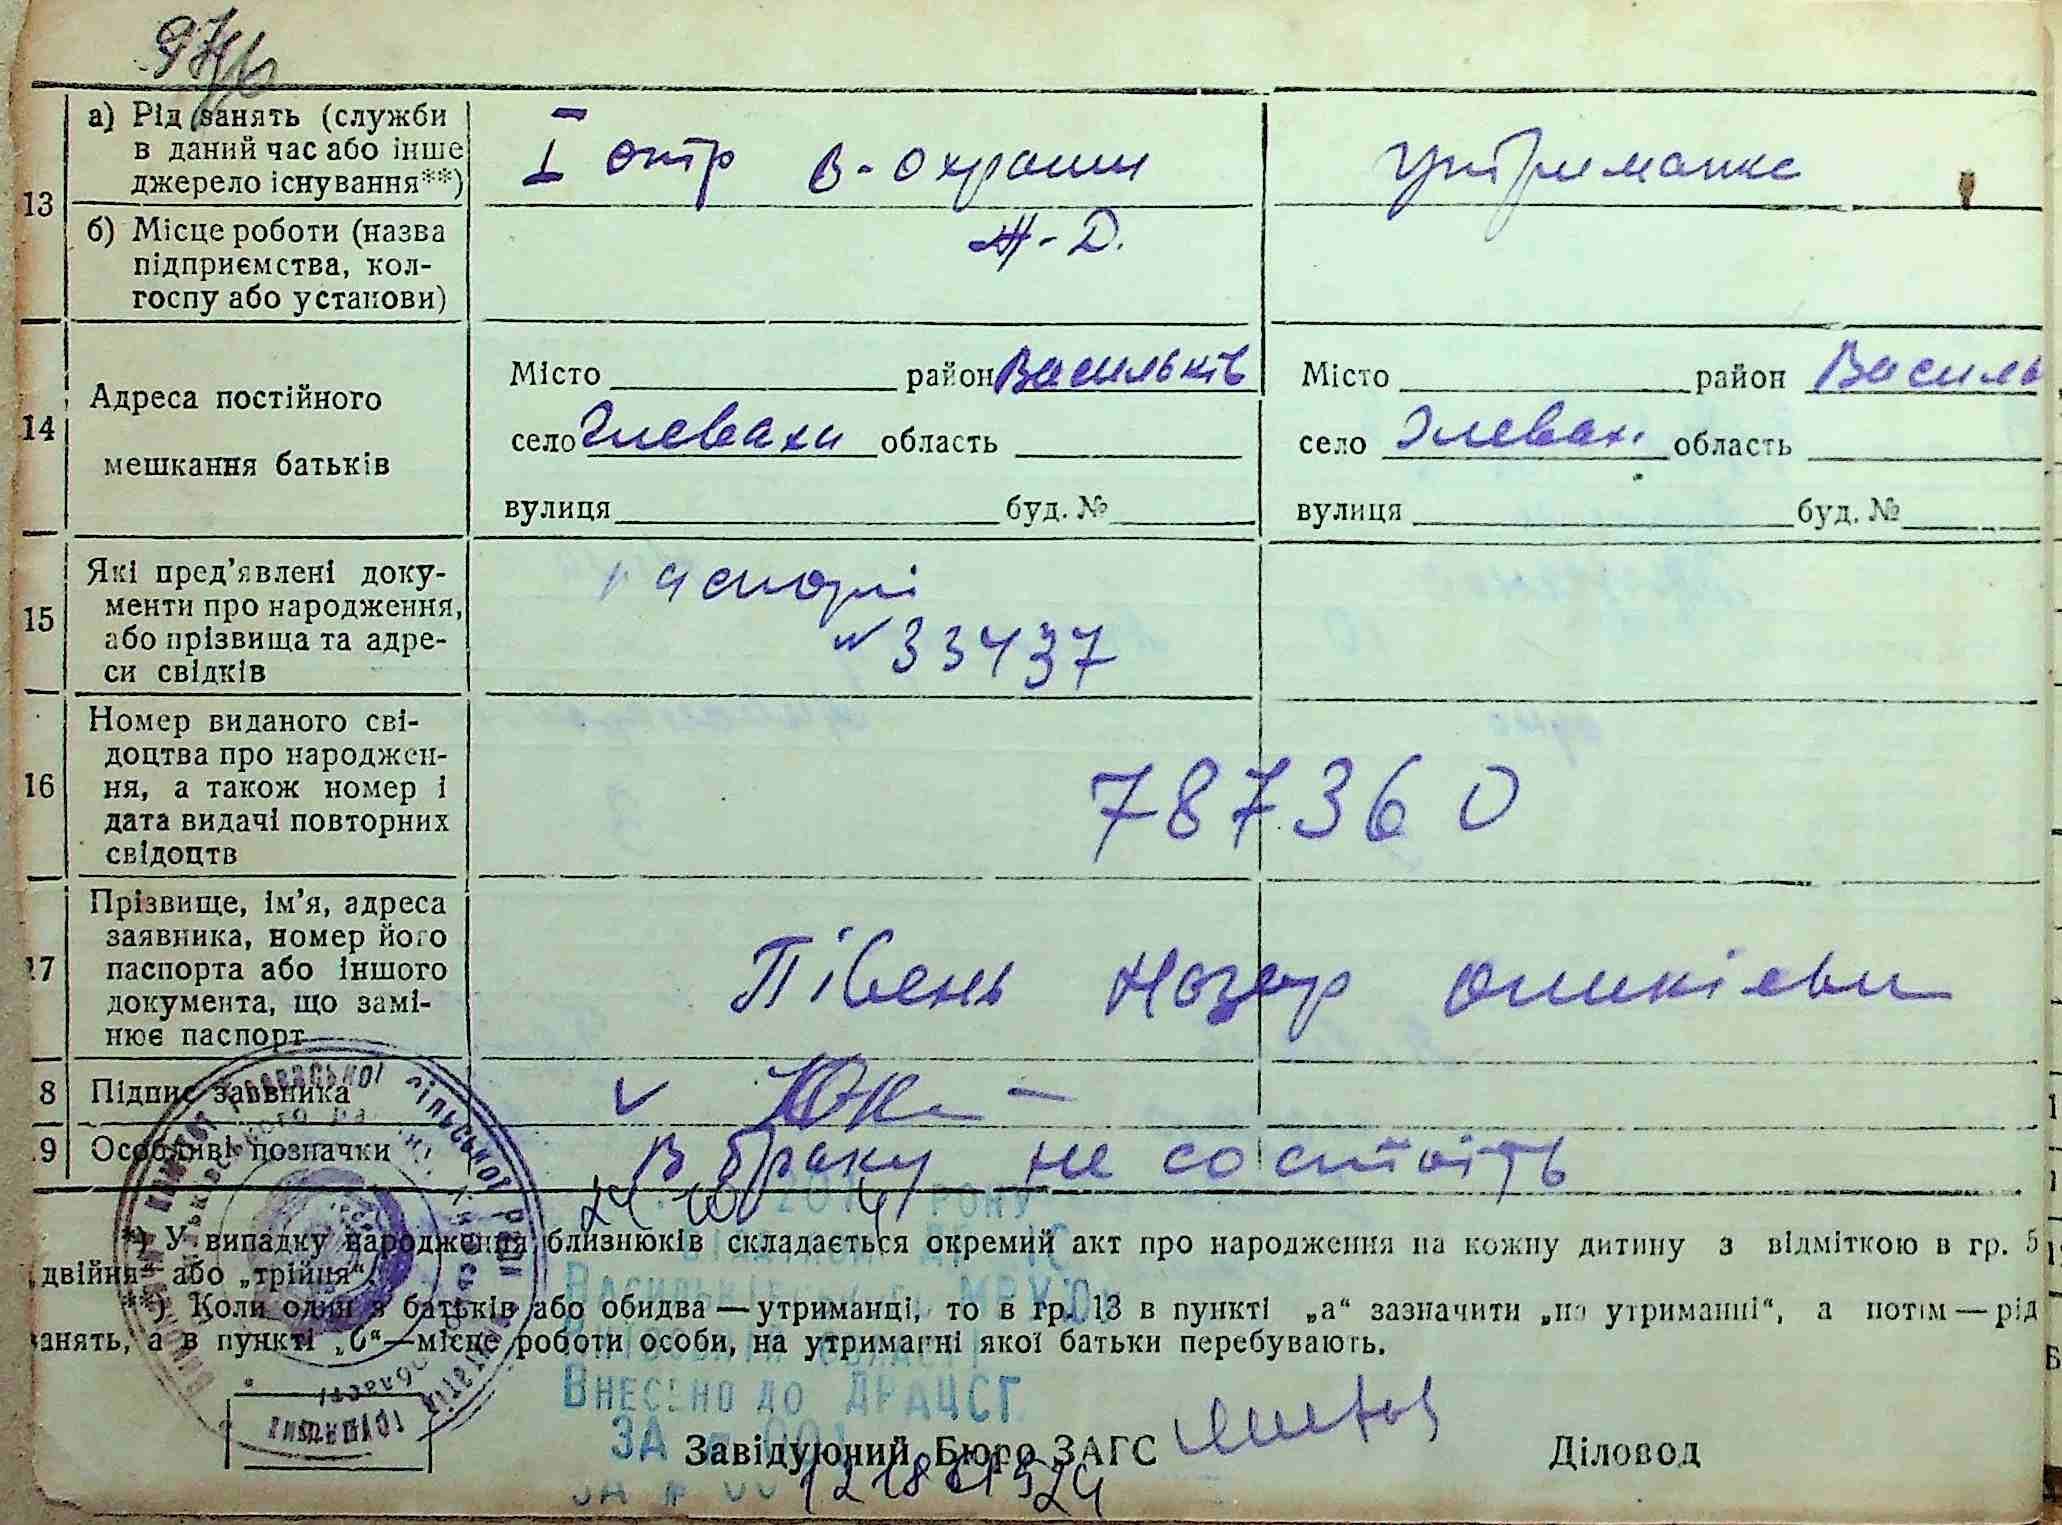 97
13
а) Рід занять (служби в даний час або інше джерело існування**)
I отр в-охрани
утриманка
б) Місце роботи (назва підприємства, колгоспу або установи)
Ж-Д.
14
Адреса постійного мешкання батьків
Місто район Васильків
село Глеваха область
вулиця буд. №
Місто район Василь
село Глевах область
вулиця буд. №
15
Які пред’явлені документи про народження, або прізвища та адреси свідків
паспорт
№ 33437
16
Номер виданого свідоцтва про народження, а також номер і дата видачі повторних свідоцтв
787360
17
Прізвище, ім’я, адреса заявника, номер його паспорта або іншого документа, що замінює паспорт
Півень Назар
8
Підпис заявника
9
Особливі позначки
В браку не состоїть
*) У випадку народження близнюків складається окремий акт про народження на кожну дитину з відміткою в гр. 5
„двійня“ або „трійця“.
**) Коли один з батьків або обидва — утриманці, то в гр. 13 в пункті „а“ зазначити „на утриманні“, а потім — рід
занять, а в пункті „б“—місце роботи особи, на утриманні якої батьки перебувають.
ВНЕСЕНО ДО ДРАЦСГ
ЗА №
Завідуючий Бюро ЗАГС
Діловод